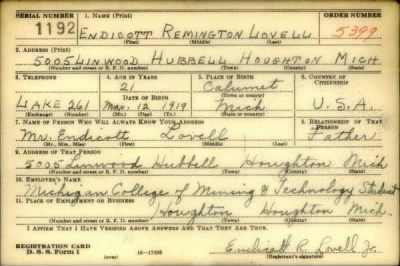 SERIAL NUMBER 1. NAME (Print) ORDER NUMBER
1192 ENDICOTT REMINGTON LOVELL 5399
(First) (Middle) (Last)
2. ADDRESS (Print)
5005 LINWOOD HUBBELL HOUGHTON MICH
(Number and street or R. F. D. number) (Town) (County) (State)
3. TELEPHONE 4. AGE IN YEARS 5. PLACE OF BIRTH 6. COUNTRY OF CITIZENSHIP
21 Calumet
DATE OF BIRTH (Town or county)
LAKE 261 MAR. 12 1919 Mich U.S.A.
(Exchange) (Number) (Mo.) (Day) (Yr.) (State or country)
7. NAME OF PERSON WHO WILL ALWAYS KNOW YOUR ADDRESS 8. RELATIONSHIP OF THAT PERSON
Mr. Endicott Lovell Father
(Mr., Mrs., Miss) (First) (Middle) (Last)
9. ADDRESS OF THAT PERSON
5005 Linwood Hubbell Houghton Mich
(Number and street or R. F. D. number) (Town) (County) (State)
10. EMPLOYER'S NAME
Michigan College of Mining & Technology Student
11. PLACE OF EMPLOYMENT OR BUSINESS
Houghton Houghton Mich.
(Number and street or R. F. D. number) (Town) (County) (State)
I AFFIRM THAT I HAVE VERIFIED ABOVE ANSWERS AND THAT THEY ARE TRUE.
REGISTRATION CARD
D. S. S. Form 1 (over) Endicott R. Lovell Jr.
(Registrant's signature)